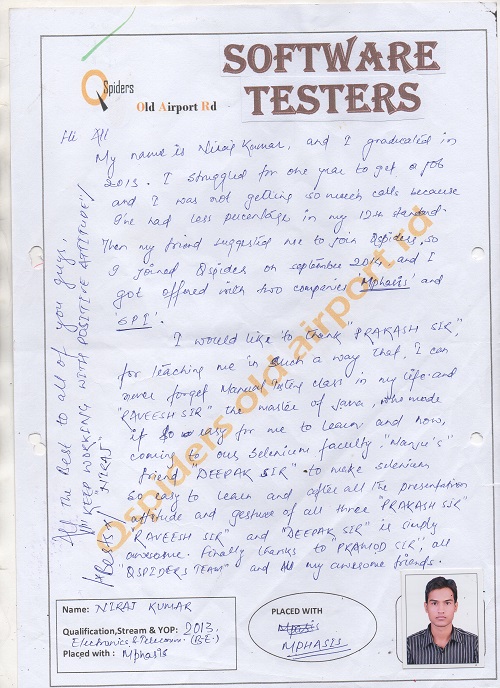 SOFTWARE
TESTERS
QSpiders
Old Airport Rd
Hi All
My name is Niraj Kumar, and I graduated in
2013. I struggled for one year to get a job
and I was not getting so much calls because
I've had less pecentage in my 12th standard.
Then my friend suggested me to join Qspiders, so
I joined Qspider on september 2014 and I
got offered with two companies 'Mphasis' and
'GPI'.
I would like to thank "PRAKASH SIR",
for teaching me in such a way that, I can
never forget Manual Testing class in my life and
"RAVEESH SIR" the master of Java, who made
it so easy for me to learn and now,
coming to our Selenium faculty, "Manju's"
friend "DEEPAK SIR" to make selenium
so easy to learn and after all the presentation
attitude and gesture of all three "PRAKASH SIR"
"RAVEESH SIR" and "DEEPAK SIR" is simply
awesome. Finally thanks to "PRAMOD SIR", all
"QSPIDERS TEAM" and All my awesome friends.
All the Best to all of you guys,
KEEP WORKING WITH POSITIVE ATTITUDE
"NIRAJ"
Qspiders old airport rd
Name: NIRAJ KUMAR
Qualification,Stream & YOP: 2013,
Electronics & Telecomm. (B.E.)
Placed with: Mphasis
PLACED WITH
MPHASIS